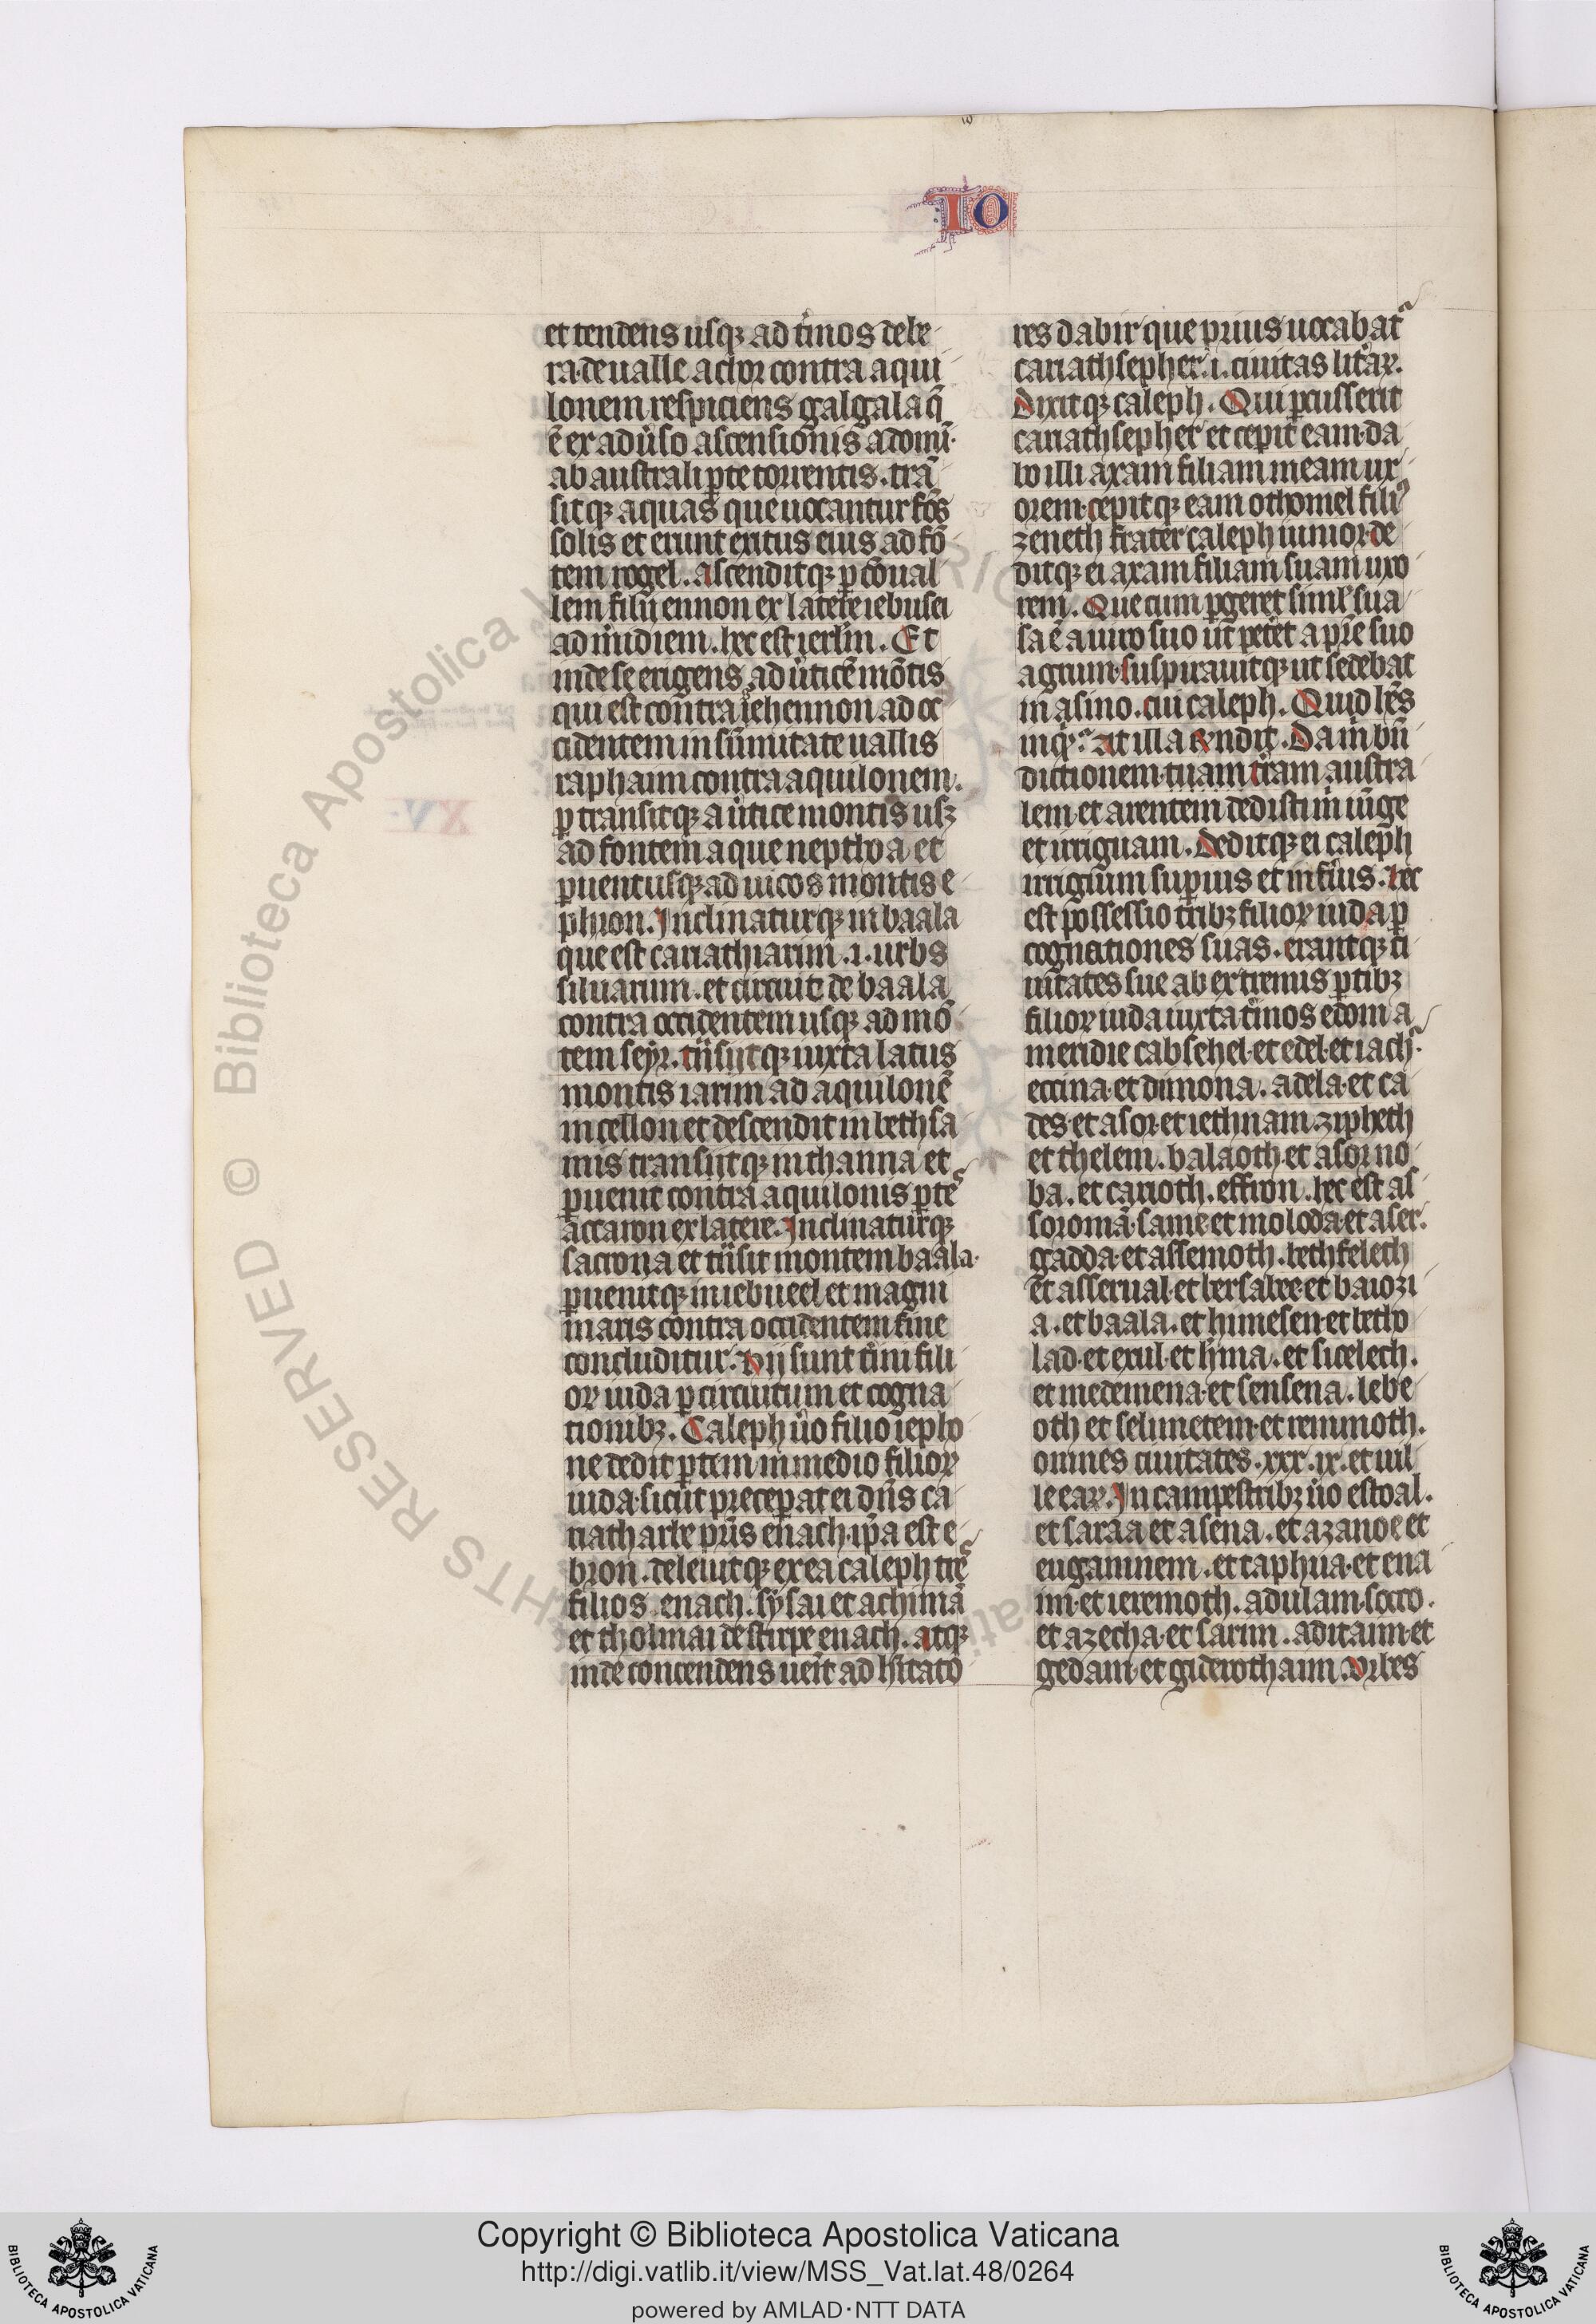 IO
et tendens usqꝫ ad t̾minos debe
ra·de ualle achor contra aqui
lonem respiciens galgala q̄
ē ex aduʼso ascensionis adomi·
ab australi ꝑte torrentis. trā
sitqꝫ aquas que uocantur fōs
solis et erunt exitus eius ad fō
tem rogel. ascenditqꝫ ꝑ cōual
lem filij ennon ex latere iebusei
ad mʼidiem. hec est ierlʼm. Et
inde se erigens ad uʼticē mōtis
qui est contra iehennon ad oc
cidentem in sūmitate uallis
raphaim contra aquilonem.
ꝑtransitqꝫ a uʼtice montis usqꝫ
ad fontem aque neptoa et
ꝑuenit usqꝫ ad uicos montis e
phron. Inclinaturqꝫ in baala
que est cariathiarim .i. urbs
siluarum. et circuit de baala
contra occidentem usqꝫ ad mō
tem seyr. tn̄sitqꝫ iuxta latus
montis iarim ad aquilonē
in cellon et descendit in bethsa
mis transitqꝫ in thanna et
ꝑuenit contra aquilonis ꝑte
accaron ex latere. Inclinaturqꝫ
sacrona et tn̄sit montem baala·
ꝑuenitqꝫ in iebneel et magni
maris contra occidentem fine
concluditur. hij sunt tʼmini fili
oꝝ iuda ꝑ circuitum et cogna
tionibꝫ. Caleph uʼo filio iepho
ne dedit ꝑtem in medio filioꝝ
iuda·sicut preceꝑat ei dn̄s ca
riatharbe pr̄is enach·ip̄a est e
bron. deleuitqꝫ ex ea caleph tre
filios enach. sysai et achimā
et tholmai de stirpe enach. atqꝫ
inde concendens uenʼt ad hʼitato
res dabir que prius uocabat̾
cariathsepher .i. ciuitas litʼaꝝ.
Dixitqꝫ caleph. Qui ꝑcusserit
cariathsepher et cepit eam·da
bo illi axam filiam meam ux
orem·cepitqꝫ eam othoniel filiꝰ
zeneth frater caleph iunior·de
ditqꝫ ei axam filiam suam uxo
rem. Que cum ꝑgeret simlʼ sua
sa ē a uiro suo ut petʼet a pr̄e suo
agrum·suspirauitqꝫ ut sedebat
in asino. cui caleph. Quid hēs
inqʼt. At illa r̄ndit. Da m̊ bn̄
dictionem·tuam tʼram austra
lem et arentem dedisti m̊ iūge
et irriguam. deditqꝫ ei caleph
irriguum suꝑius et infʼius. hec
est possessio tribꝫ filioꝝ iuda ꝑ
cognationes suas. erantqꝫ ci
uitates sue ab extremis ꝑtibꝫ
filioꝝ iuda iuxta tʼminos edom a
meridie cabsehel·et edel·et iach·
et cina·et dimona. adela·et ca
des·et asor·et iethnam·zipheth
et thelem. balaoth·et asor no
ba. et carioth. effron. hec est as
soromā·same·et moloda·et aser.
gadda·et assemoth. bethfelech
et asserual·et bersabee·et baiozi
a. et baala. et himesen·et betho
lad·et exul·et hʼma. et sicelech.
et medemena·et sensena. lebe
oth et selimetem·et remmoth.
omnes ciuitates .xxx.ix. et uil
le eaꝝ. In campestribꝫ uʼo estoal.
et saraa et asena. et azanoe et
engannem. et taphua·et ena
im·et ieremoth. adulam·socco.
et azecha·et sarim. aditaim·et
gedam·et giderothaim. vrbes
Copyright © Biblioteca Apostolica Vaticana
http://digi.vatlib.it/view/MSS_Vat.lat.48/0264
powered by AMLAD·NTT DATA